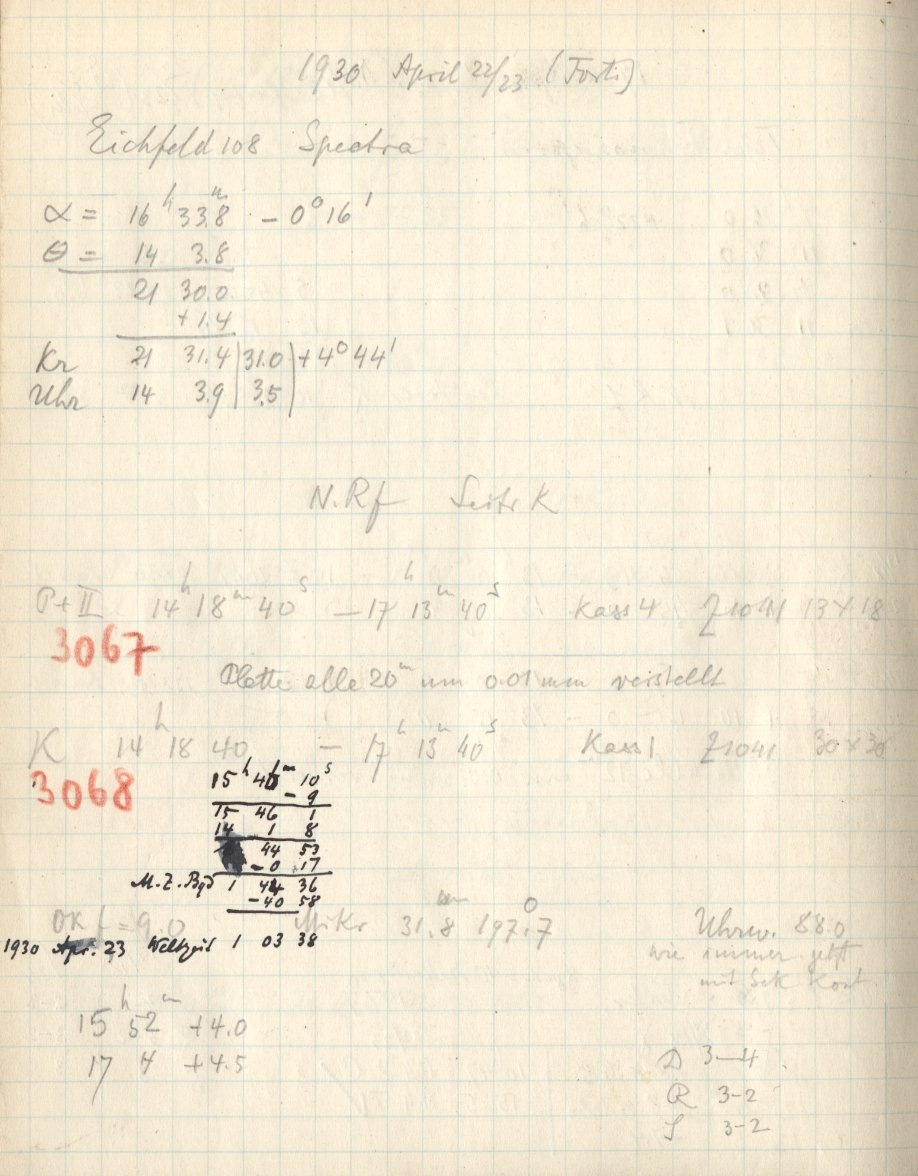 1930 April 22/23 (Forts)
Eichfeld 108 Spectra
α = 16ʰ 33.8ᵐ − 0° 16'
Θ = 14 3.8
21 30.0
+1.4
Kr 21 31.4 | 31.0 | +4° 44'
Uhr 14 3.9 | 3.5 |
N.Rf Seite K
P+II 14ʰ 18ᵐ 40ˢ − 17ʰ 13ᵐ 40ˢ Kass 4 Z1041 13×18
3067
Platte alle 20ᵐ um 0.01 mm verstellt
K 14ʰ 18 40 − 17ʰ 13ᵐ 40ˢ Kass 1 Z1041 30×30
3068
15ʰ 46ᵐ 10ˢ
− 9
15 46 1
14 1 8
44 53
− 0 17
M.Z. Bgd 1 44 36
−40 58
OK f = 9.0 MiKr 31.8ᵐ 197.°7 Uhrw. 88.0
wie immer jetzt
mit Sek Kont
1930 Apr. 23 Weltzeit 1 03 38
15ʰ 52ᵐ +4.0
17 4 +4.5
D 3–4
R 3-2
S 3-2